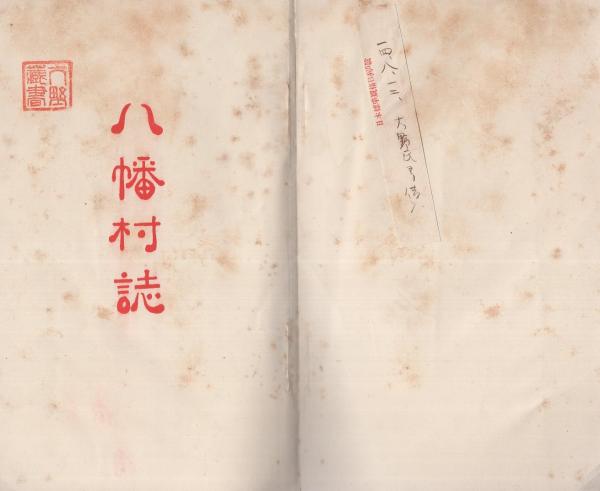 一四八、一二、大野氏ヨリ借
大野
藏書
八幡村誌